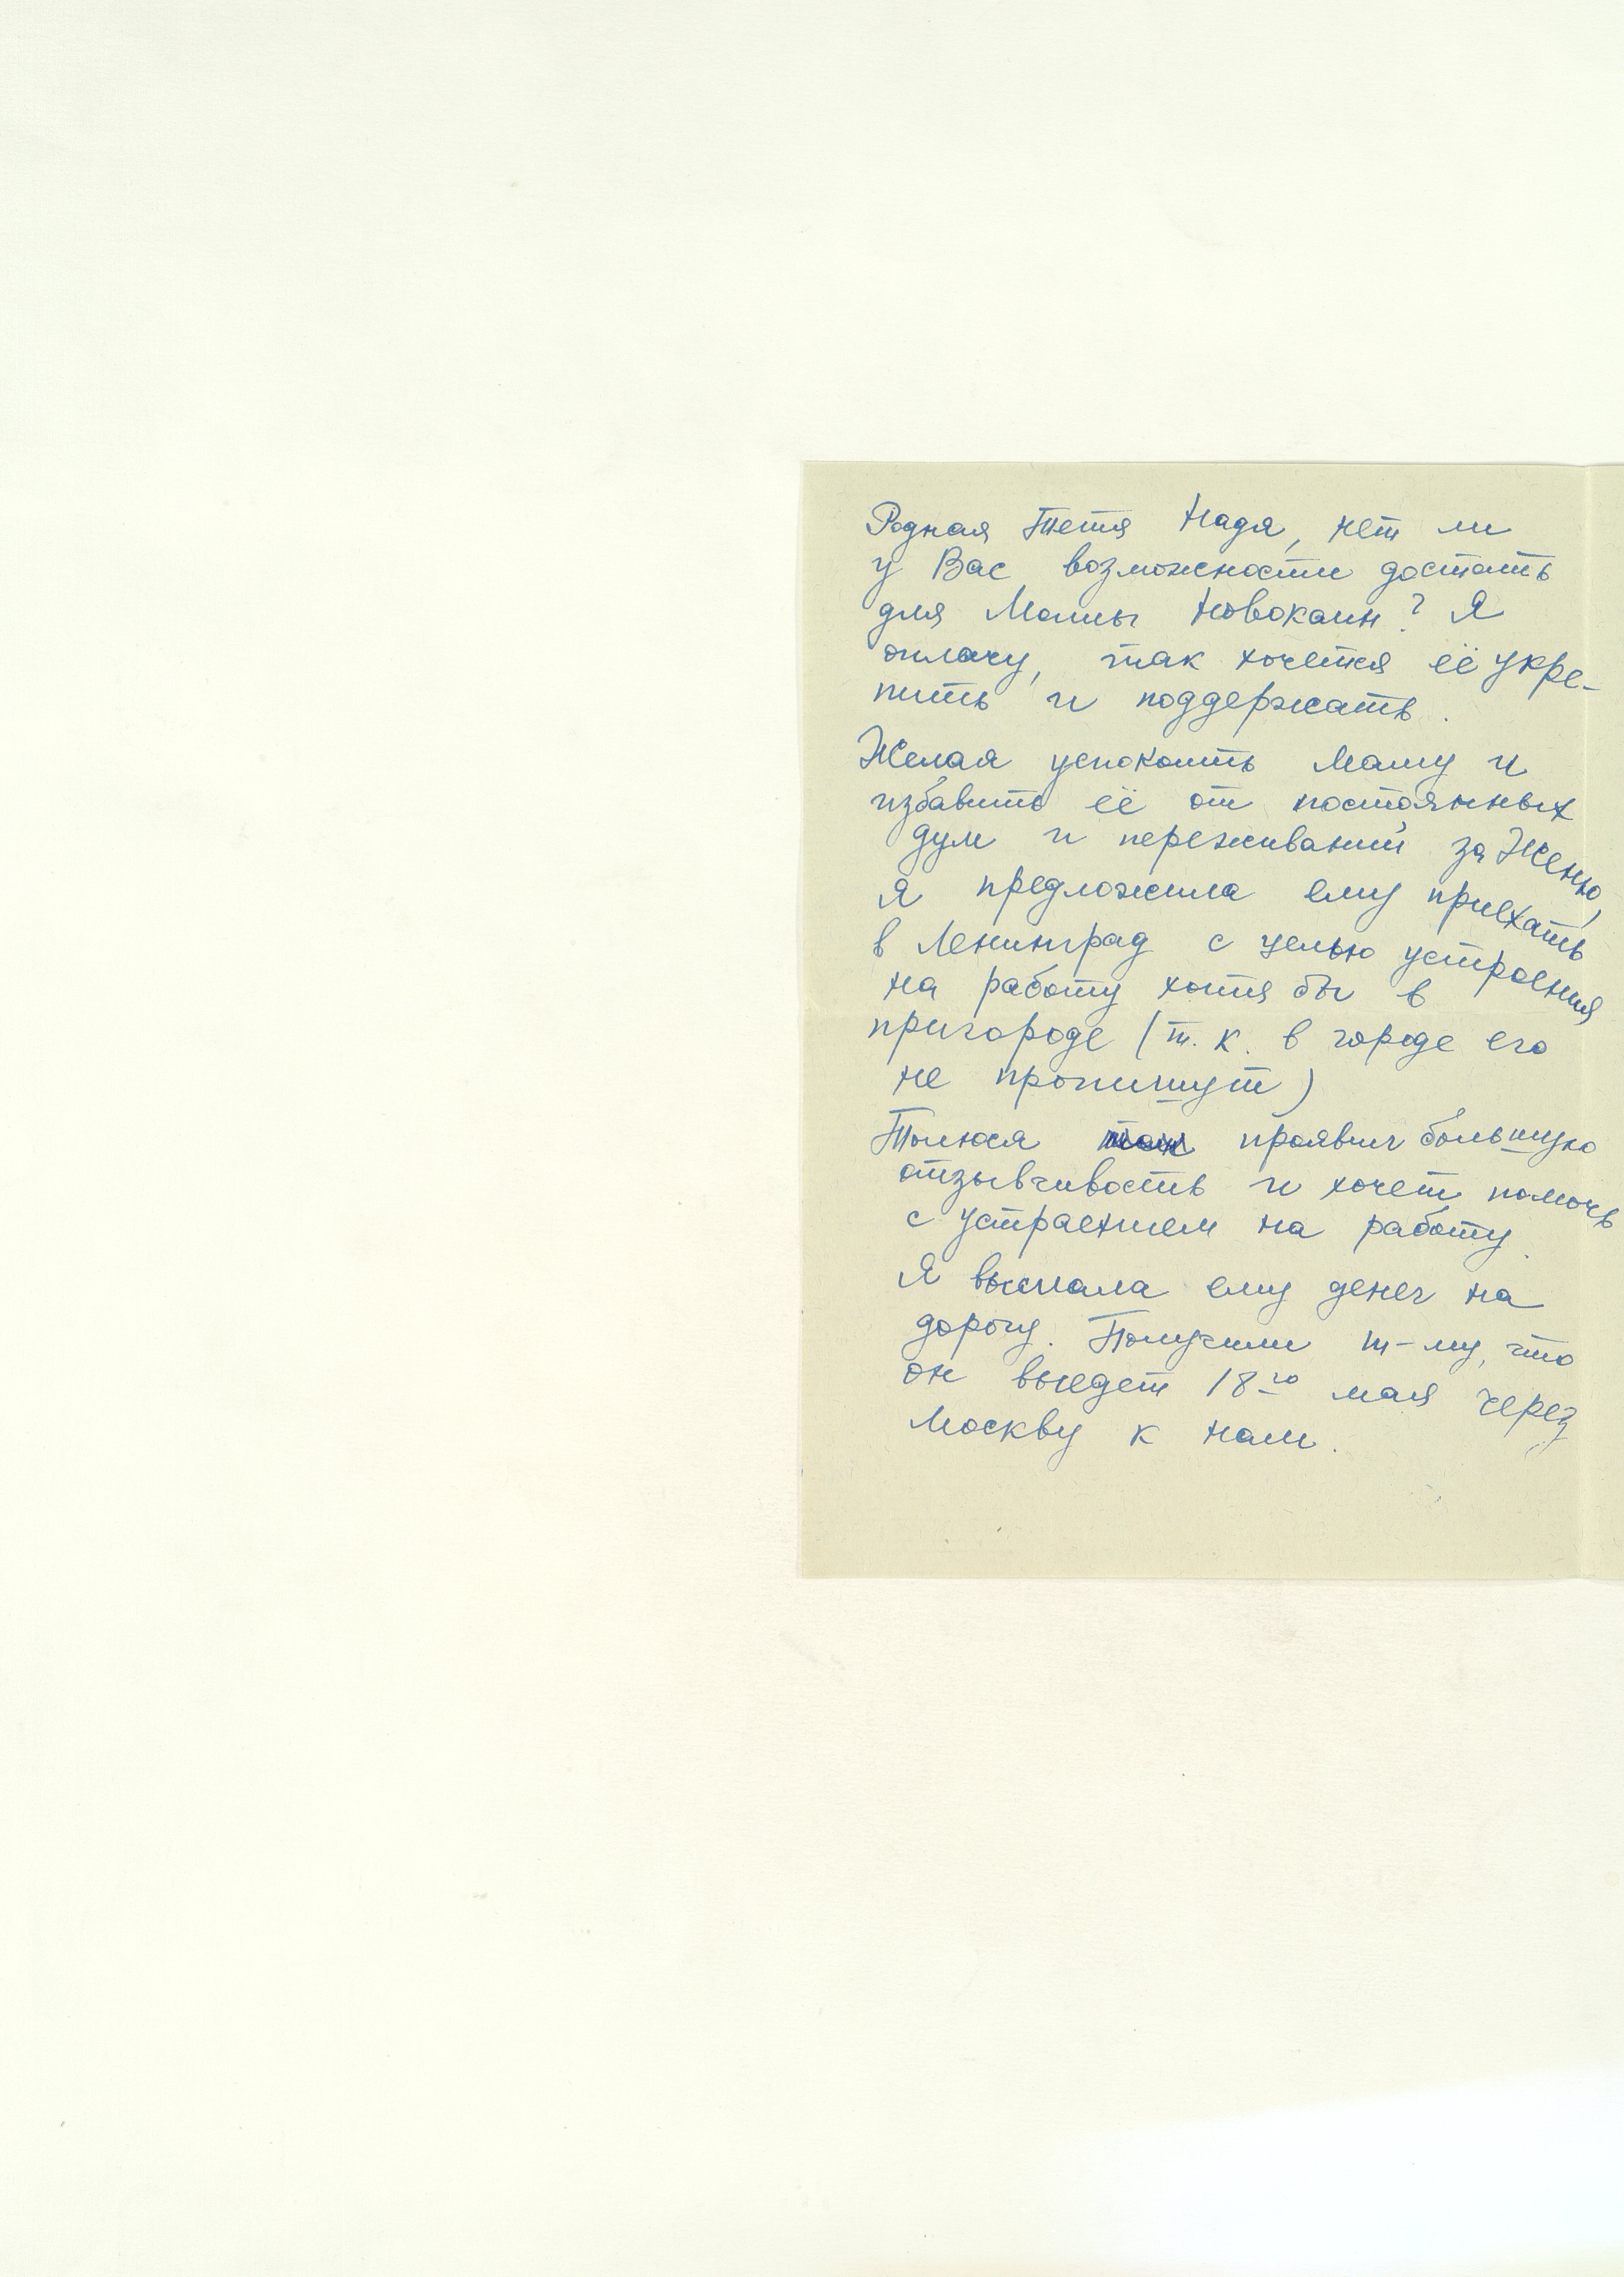 Родная Тетя Надя, нет ли
у Вас возможности достать
для Мамы Новокаин? Я
оплачу, так хочется её укре-
пить и поддержать.
Желая успокоить Маму и
избавить её от постоянных
дум и переживаний за Женю,
я предложила ему приехать
в Ленинград с целью устроения
на работу хотя бы в
пригороде (т. к. в городе его
не пропишут)
Толюся проявил большую
отзывчивость и хочет помочь
с устраением на работу.
Я выслала ему денег на
дорогу. Получили т-му, что
он выедет 18го мая через
Москву к нам.